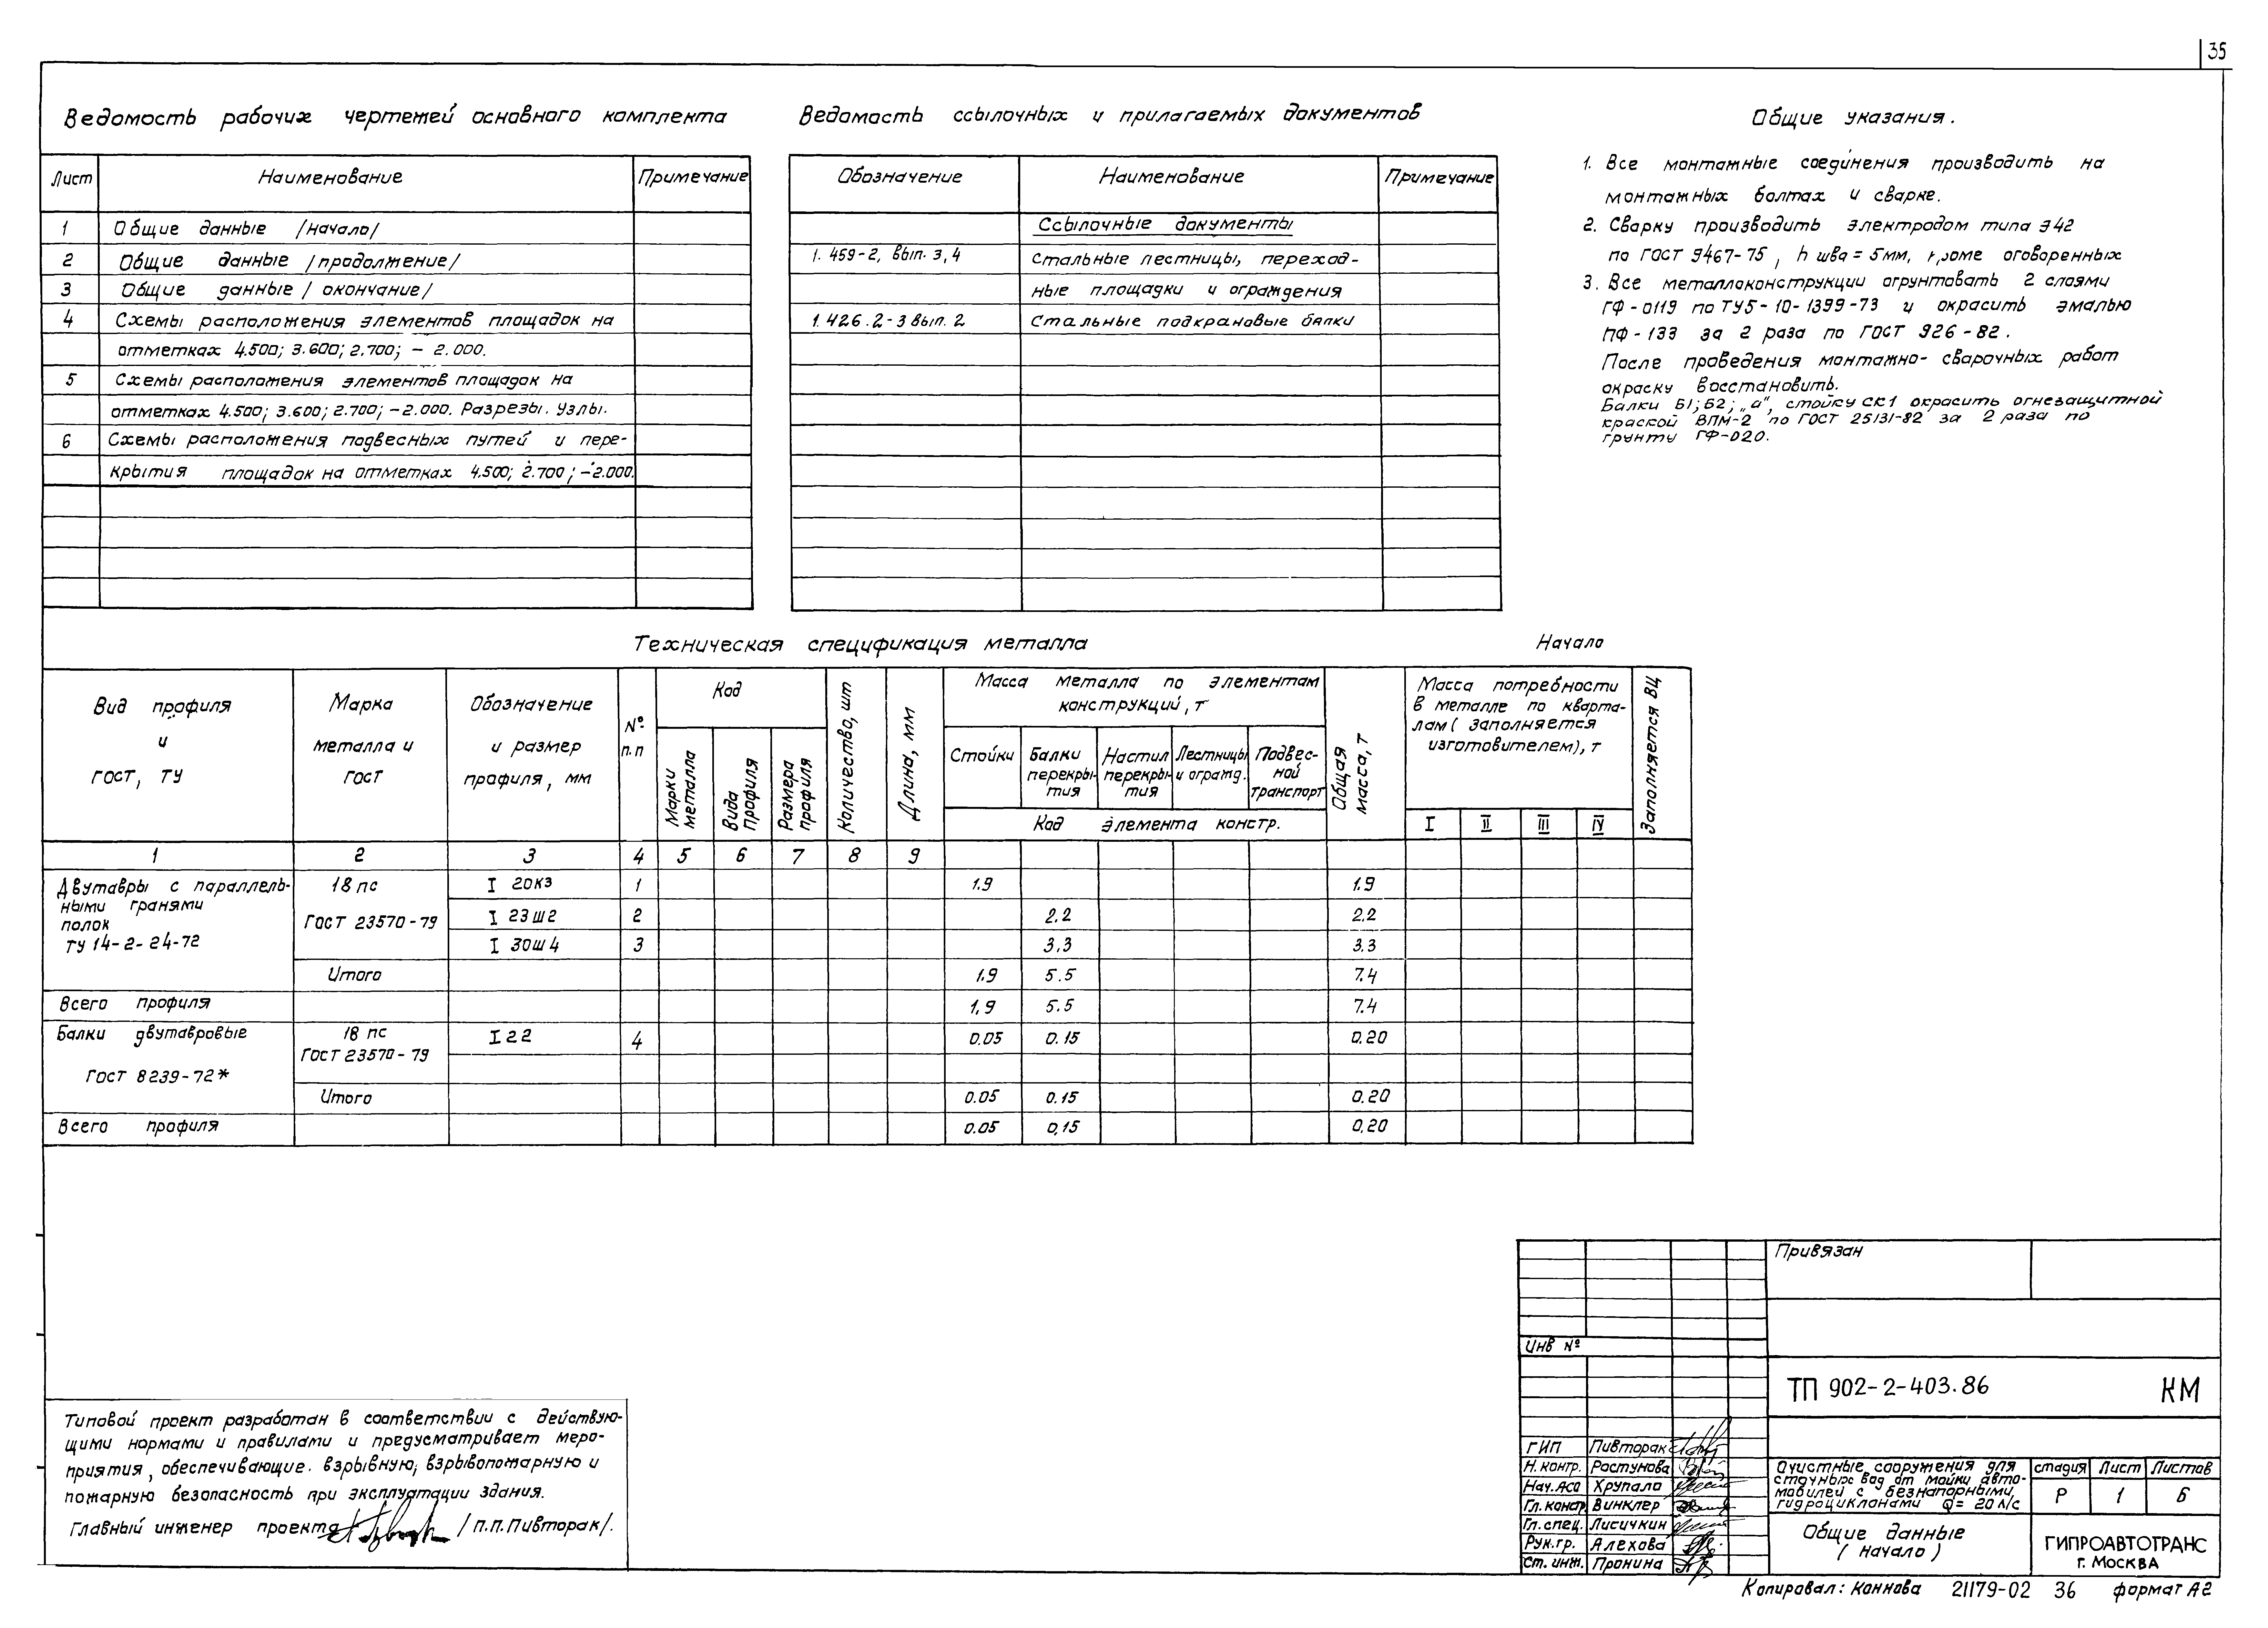 35
Ведомость рабочих чертежей основного комплекта
Лист Наименование Примечание
1 Общие данные /начало/
2 Общие данные /продолжение/
3 Общие данные /окончание/
4 Схемы расположения элементов площадок на
отметках 4.500; 3.600; 2.700; -2.000.
5 Схемы расположения элементов площадок на
отметках 4.500; 3.600; 2.700; -2.000. Разрезы. Узлы.
6 Схемы расположения подвесных путей и пере-
крытия площадок на отметках 4.500; 2.700; -2.000.
Ведомость ссылочных и прилагаемых документов
Обозначение Наименование Примечание
Ссылочные документы
1.459-2, вып. 3,4 Стальные лестницы, переход-
ные площадки и ограждения
1.426.2-3 вып. 2 Стальные подкрановые балки
Общие указания.
1. Все монтажные соединения производить на
монтажных болтах и сварке.
2. Сварку производить электродом типа Э42
по ГОСТ 9467-75, h шва = 5мм, кроме оговоренных
3. Все металлоконструкции огрунтовать 2 слоями
ГФ-0119 по ТУ5-10-1399-73 и окрасить эмалью
ПФ-133 за 2 раза по ГОСТ 926-82.
После проведения монтажно-сварочных работ
окраску восстановить.
Балки Б1; Б2; „а", стойку СК1 окрасить огнезащитной
краской ВПМ-2 по ГОСТ 25131-82 за 2 раза по
грунту ГФ-020.
Техническая спецификация металла
Начало
Вид профиля и ГОСТ, ТУ
Марка металла и ГОСТ
Обозначение и размер профиля, мм
№ п.п
Код
Марки металла
Вида профиля
Размера профиля
Количество, шт
Длина, мм
Масса металла по элементам конструкций, т
Стойки
Балки перекры-тия
Настил перекры-тия
Лестницы и огражд.
Подвес-ной транспорт
Код элемента констр.
Общая масса, т
Масса потребности
в металле по кварта-
лам (заполняется
изготовителем), т
I II III IV
Заполняется ВЦ
1 2 3 4 5 6 7 8 9
Двутавры с параллель-
ными гранями
полок
ТУ 14-2-24-72
18 пс
ГОСТ 23570-79
I 20К3 1 1.9 1.9
I 23Ш2 2 2.2 2.2
I 30Ш4 3 3.3 3.3
Итого 1.9 5.5 7.4
Всего профиля 1,9 5.5 7.4
Балки двутавровые
ГОСТ 8239-72*
18 пс
ГОСТ 23570-79
I 22 4 0.05 0.15 0.20
Итого 0.05 0.15 0.20
Всего профиля 0.05 0,15 0,20
Типовой проект разработан в соответствии с действую-
щими нормами и правилами и предусматривает меро-
приятия, обеспечивающие. взрывную, взрывопожарную и
пожарную безопасность при эксплуатации здания.
Главный инженер проекта /П.П.Пивторак/.
Привязан
Инв №
ТП 902-2-403.86 КМ
ГИП Пивторак
Н. контр. Растунова
Нач. АСО Хрупало
Гл. констр. Винклер
Гл. спец. Лисичкин
Рук. гр. Алехова
Ст. инж. Пронина
Очистные сооружения для
сточных вод от мойки авто-
мобилей с безнапорными
гидроциклонами Q = 20 л/с
стадия Лист Листов
Р 1 6
Общие данные
(начало)
ГИПРОАВТОТРАНС
г. Москва
Копировал: Коннова 21179-02 36 формат А2